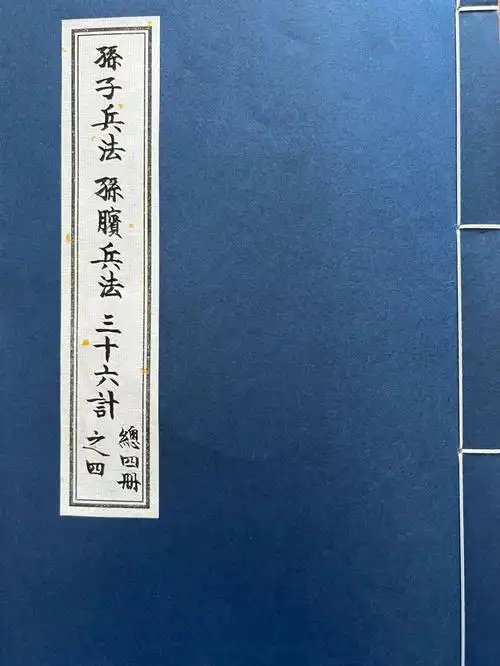 孫子兵法 孫臏兵法 三十六計
總四冊
之四